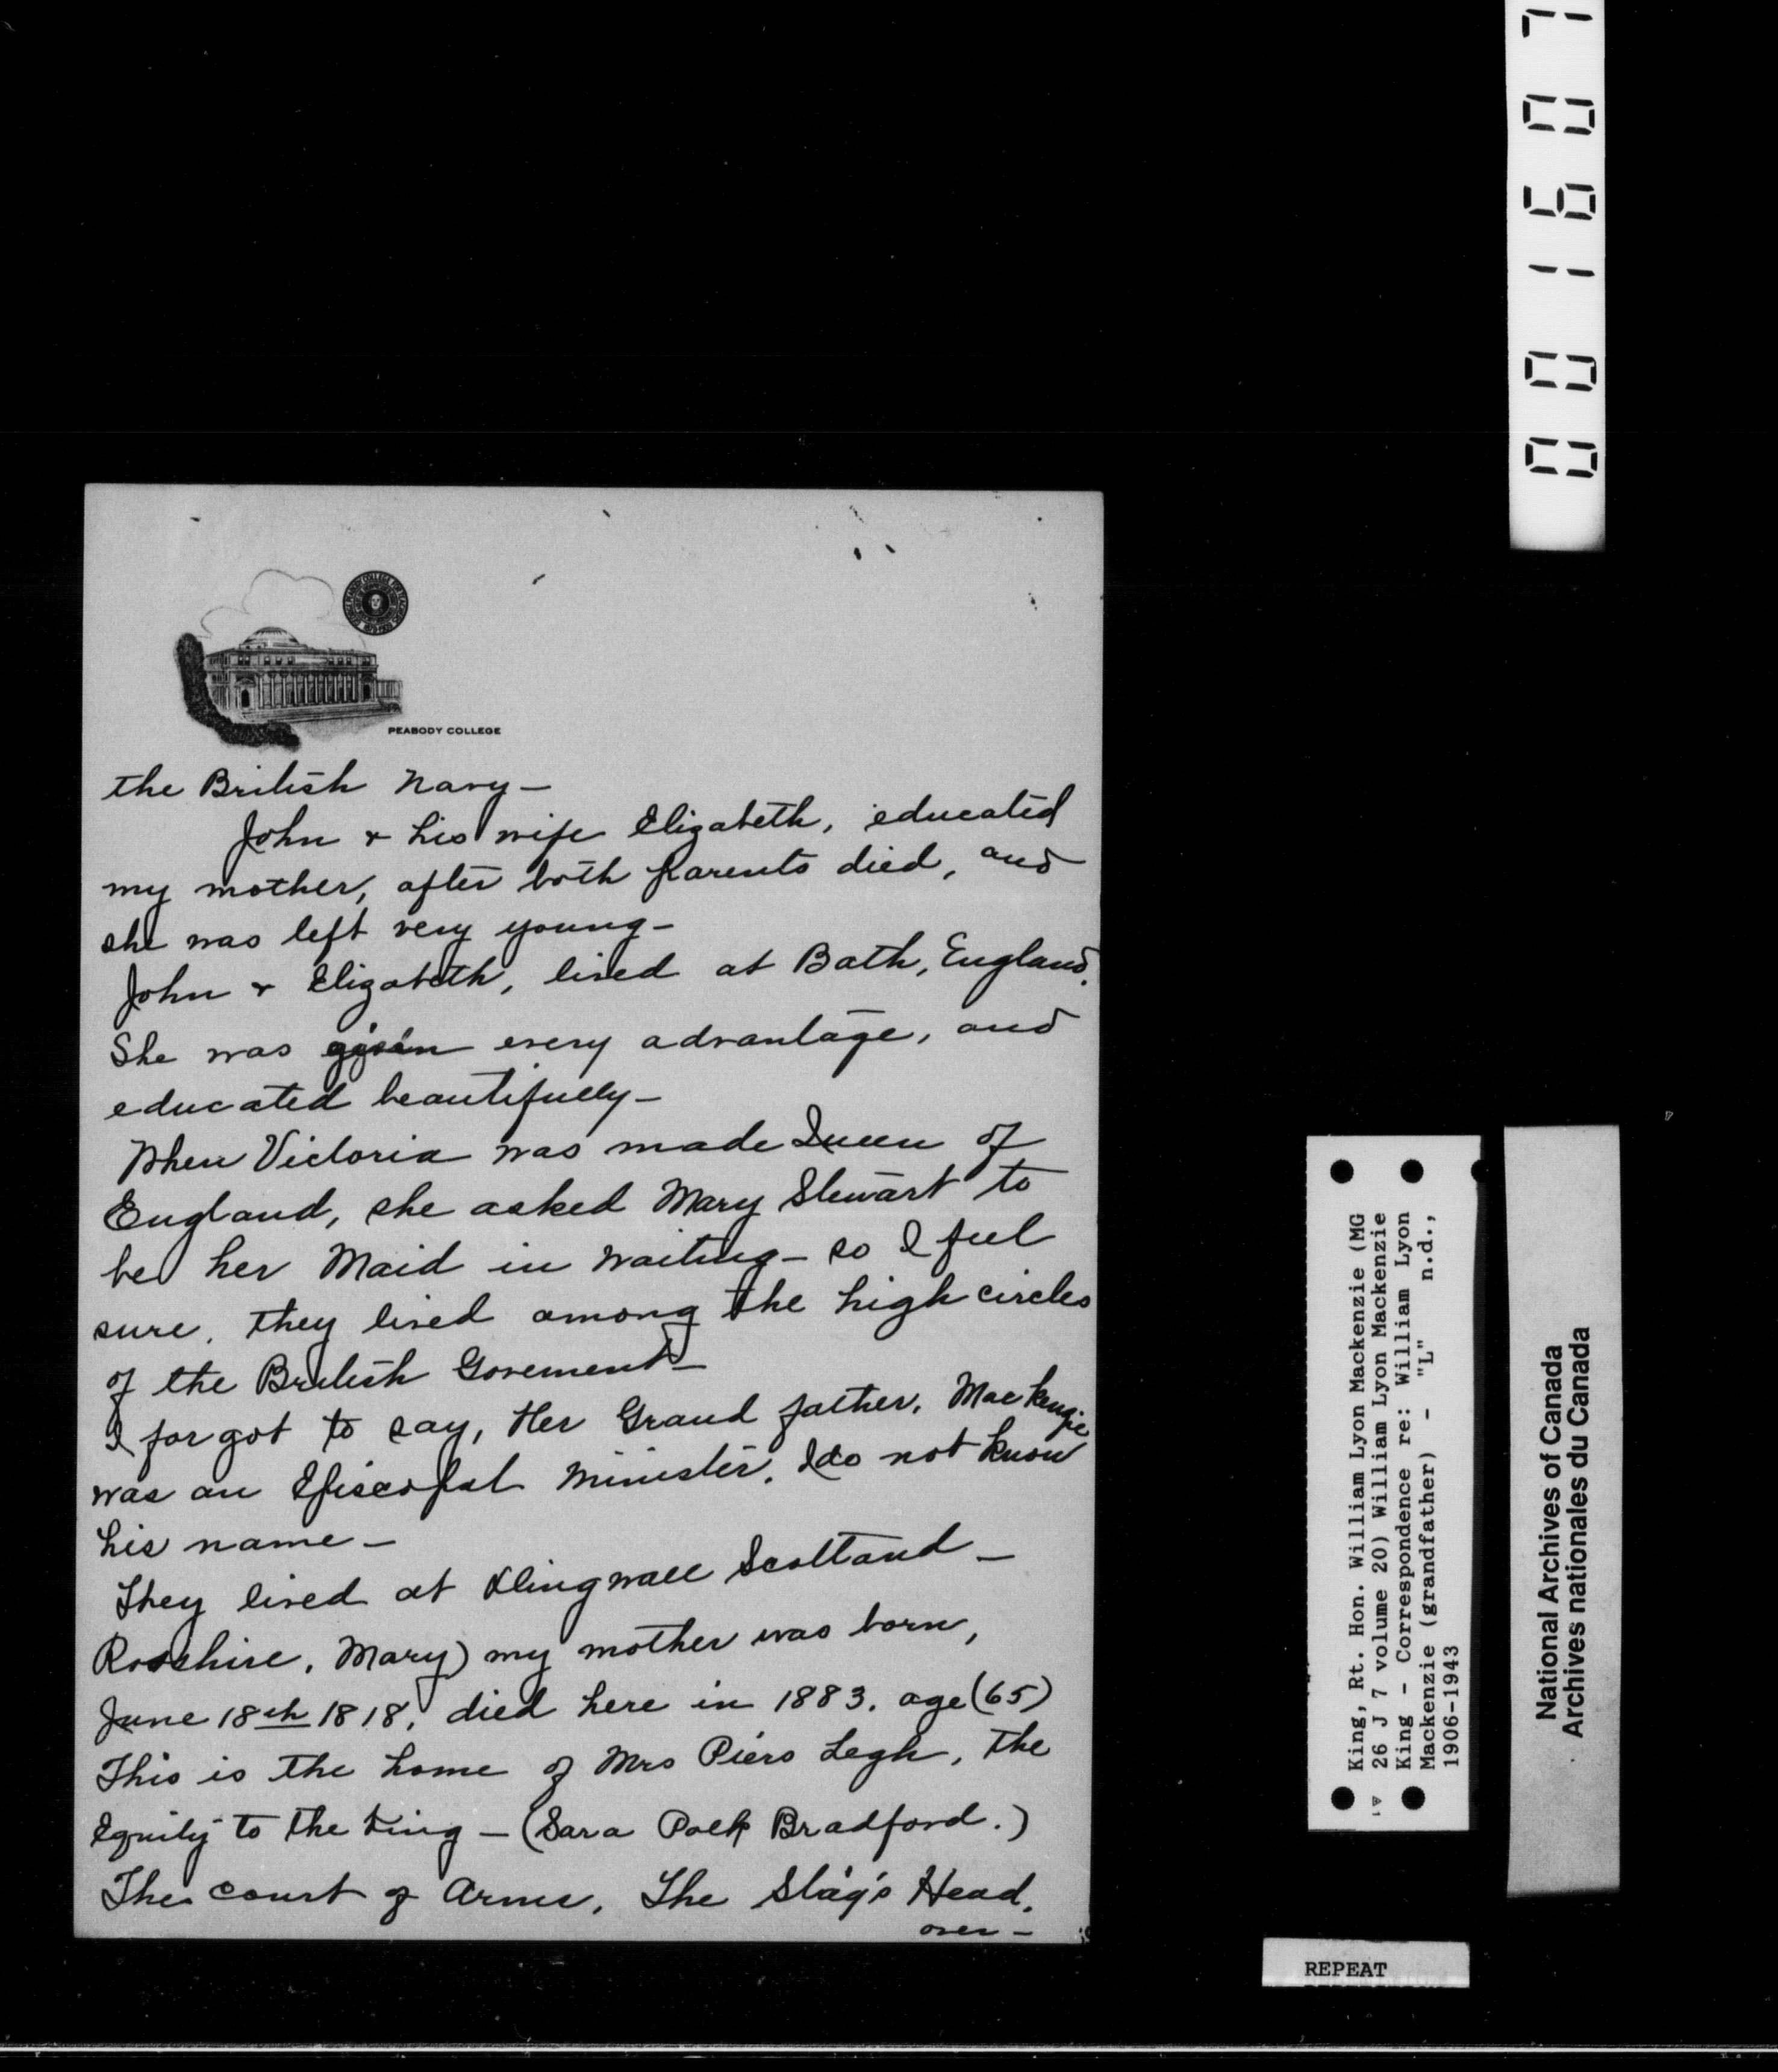 PEABODY COLLEGE
the British Navy—
John & his wife Elizabeth, educated
my mother, after both parents died, and
she was left very young—
John & Elizabeth, lived at Bath, England.
She was given every advantage, and
educated beautifully—
When Victoria was made Queen of
England, she asked Mary Stewart to
be her Maid in waiting— so I feel
sure, they lived among the high circles
of the British Goverment—
I forgot to say, Her Grand father, MacKenzie
was an Episcopal Minister, I do not know
his name—
They lived at Dlingwall Scottand—
Rosshire, Mary) my mother was born,
June 18th 1818, died here in 1883. age (65)
This is the home of Mrs Piers Legh, the
Equity to the King— (Sara Polk Bradford.)
The court of Arms, The Stag's Head.
over—
001607
King, Rt. Hon. William Lyon Mackenzie (MG
26 J 7 volume 20) William Lyon Mackenzie
King - Correspondence re: William Lyon
Mackenzie (grandfather) - "L" n.d.,
1906-1943
National Archives of Canada
Archives nationales du Canada
REPEAT